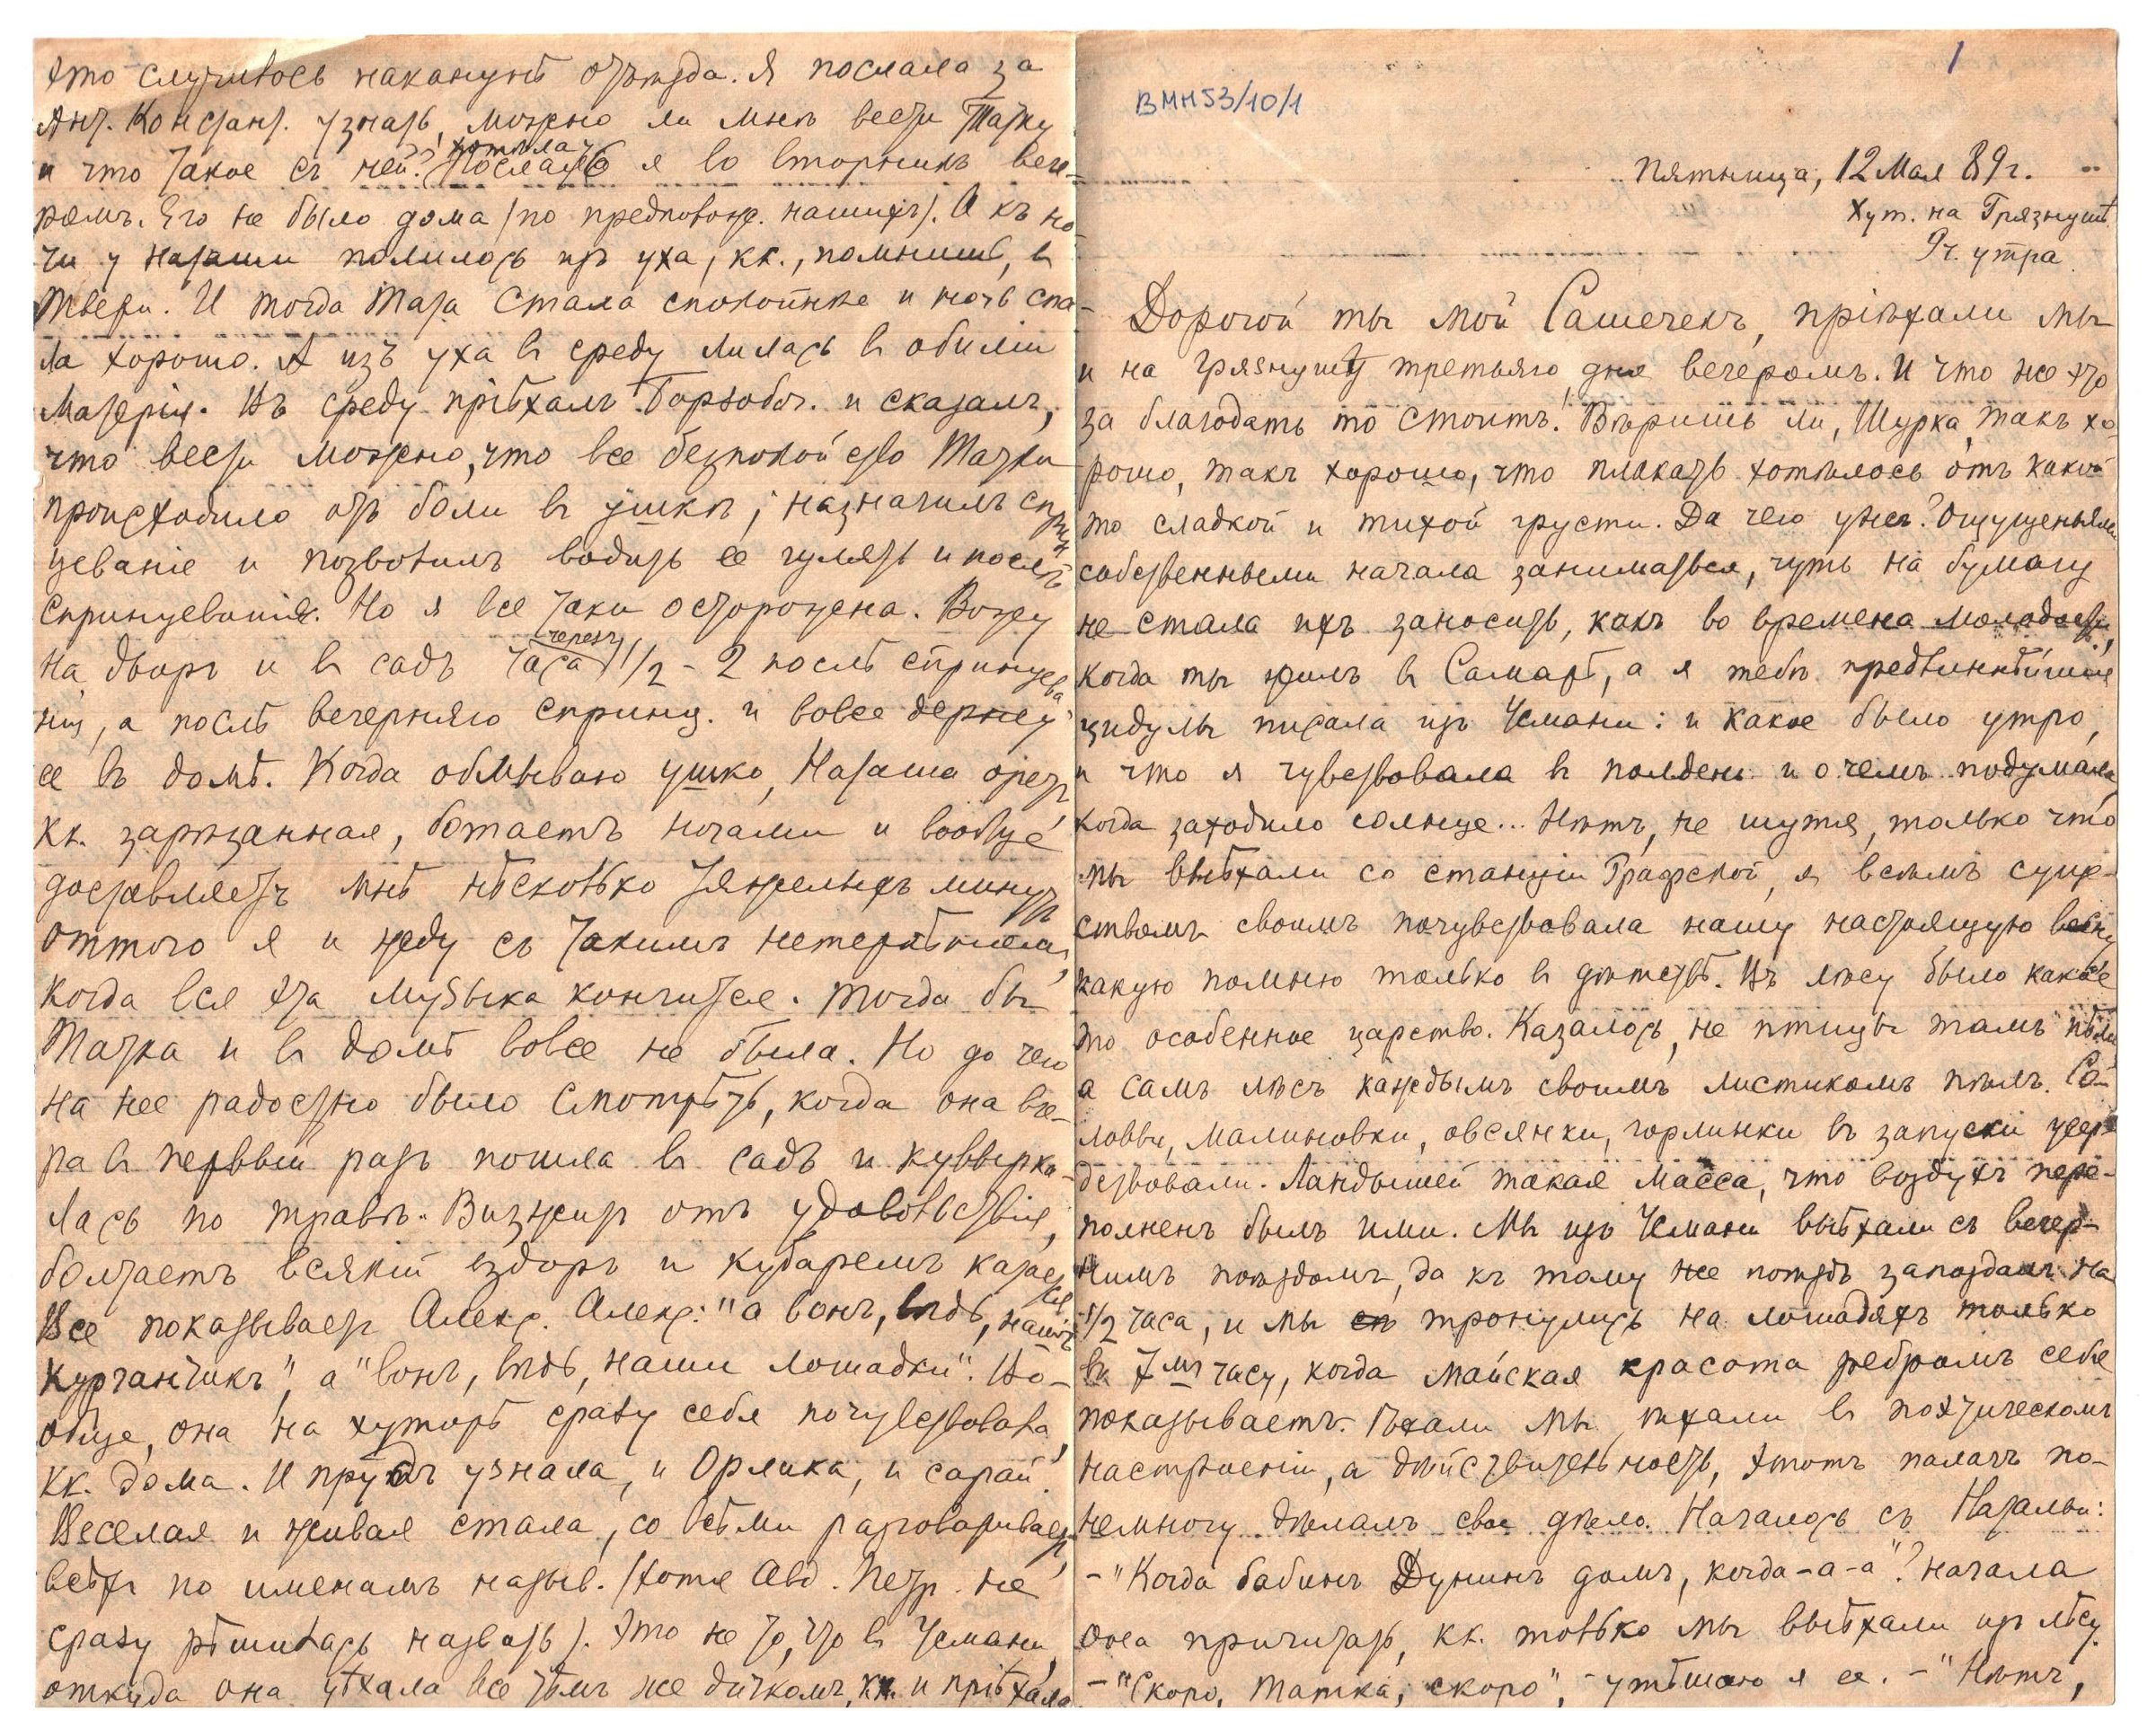 это случилось наканунѣ отъѣзда. Я послала за
Ант. Констант. узнать, можно ли мнѣ везти Татку
и что такое съ ней? Послала я во вторникъ вече-
ромъ. Его не было дома (по предположе. нашихъ). А къ но-
чи у Наташи полилось изъ уха, кк., помнишь, въ
Твери. И тогда Тата стала спокойнѣе и ночь спа-
ла хорошо. А изъ уха въ среду лилась въ обиліи
матерія. Въ среду пріѣхалъ и сказалъ,
что везти можно, что все безпокойство Татки
происходило отъ боли въ ушкѣ; назначилъ сприн-
цеваніе и позволилъ водить ее гулять и послѣ
спринцеванія. Но я все таки осторожна. Вожу
на дворъ и въ садъ часа черезъ 1½ - 2 послѣ спринцева
нія, а послѣ вечерняго спринц. и вовсе держу
ее въ домѣ. Когда обмываю ушко, Наташа оретъ,
кк. зарѣзанная, ботаетъ ногами и вообще
доставляетъ мнѣ нѣсколько тяжелыхъ минутъ
оттого я и жду съ такимъ нетерпѣніемъ,
когда вся эта музыка кончится. Тогда бы
Татка и въ домѣ вовсе не была. Но до чего
на нее радостно было смотрѣть, когда она вче-
ра въ первый разъ пошла въ садъ и кувырка-
лась по травѣ. Визжитъ отъ удовольствія,
болтаетъ всякій вздоръ и кубаремъ катается
Все показываетъ Алекс. Алекс: "а вонъ, вѣдь, нашъ
курганчикъ", а "вонъ, вѣдь, наши лошадки". Во-
обще, она на хуторѣ сразу себя почувствовала,
кк. дома. И прудъ узнала, и Орлика, и сарай.
Веселая и живая стала, со всѣми разговариваетъ,
всѣхъ по именамъ назыв. (хотя Авд. Петр. не
сразу рѣшилась назвать). Это не то, что въ Усмани,
откуда она уѣхала все тѣмъ же дичкомъ, кк. и пріѣхала
1
ВМН53/10/1
Пятница, 12 Мая 89 г.
Хут. на Грязнушѣ
9 ч. утра
Дорогой ты мой Сашечекъ, пріѣхали мы
и на Грязнушу третьяго дня вечеромъ. И что же это
за благодать то стоитъ! Вѣришь ли, Шурка, такъ хо-
рошо, такъ хорошо, что плакать хотѣлось отъ какой
то сладкой и тихой грусти. Да чего ужъ? Ощущеньями
собственными начала заниматься, чуть на бумагу
не стала ихъ заносить, какъ во времена молодости,
когда ты жилъ въ Самарѣ, а я тебѣ предлиннѣйшія
цидулы писала изъ Усмани: и какое было утро,
и что я чувствовала въ полдень и о чемъ подумала,
когда заходило солнце... Нѣтъ, не шутя, только что
мы выѣхали со станціи Графской, я всѣмъ суще-
ствомъ своимъ почувствовала нашу настоящую весну
какую помню только въ дѣтствѣ. Въ лѣсу было какое
то особенное царство. Казалось, не птицы тамъ пѣли
а самъ лѣсъ каждымъ своимъ листикомъ пѣлъ. Со-
ловьи, малиновки, овсянки, горлинки въ запуски усер-
дствовали. Ландышей такая масса, что воздухъ пере-
полненъ былъ ими. Мы изъ Усмани выѣхали съ вечер-
нимъ поѣздомъ, да къ тому же поѣздъ запоздалъ на
1/2 часа, и мы тронулись на лошадяхъ только
въ 7мъ часу, когда майская красота ребромъ себя
показываетъ. Ѣхали мы, ѣхали въ поэтическомъ
настроеніи, а дѣйствительность, этотъ палачъ по-
немногу дѣлалъ свое дѣло. Началось съ Натальи:
- "Когда бабинъ Дунинъ домъ, когда-а-а"? начала
она причитать, кк. только мы выѣхали изъ лѣсу.
- "Скоро, Татка, скоро", - утѣшаю я ее. - "Нѣтъ,